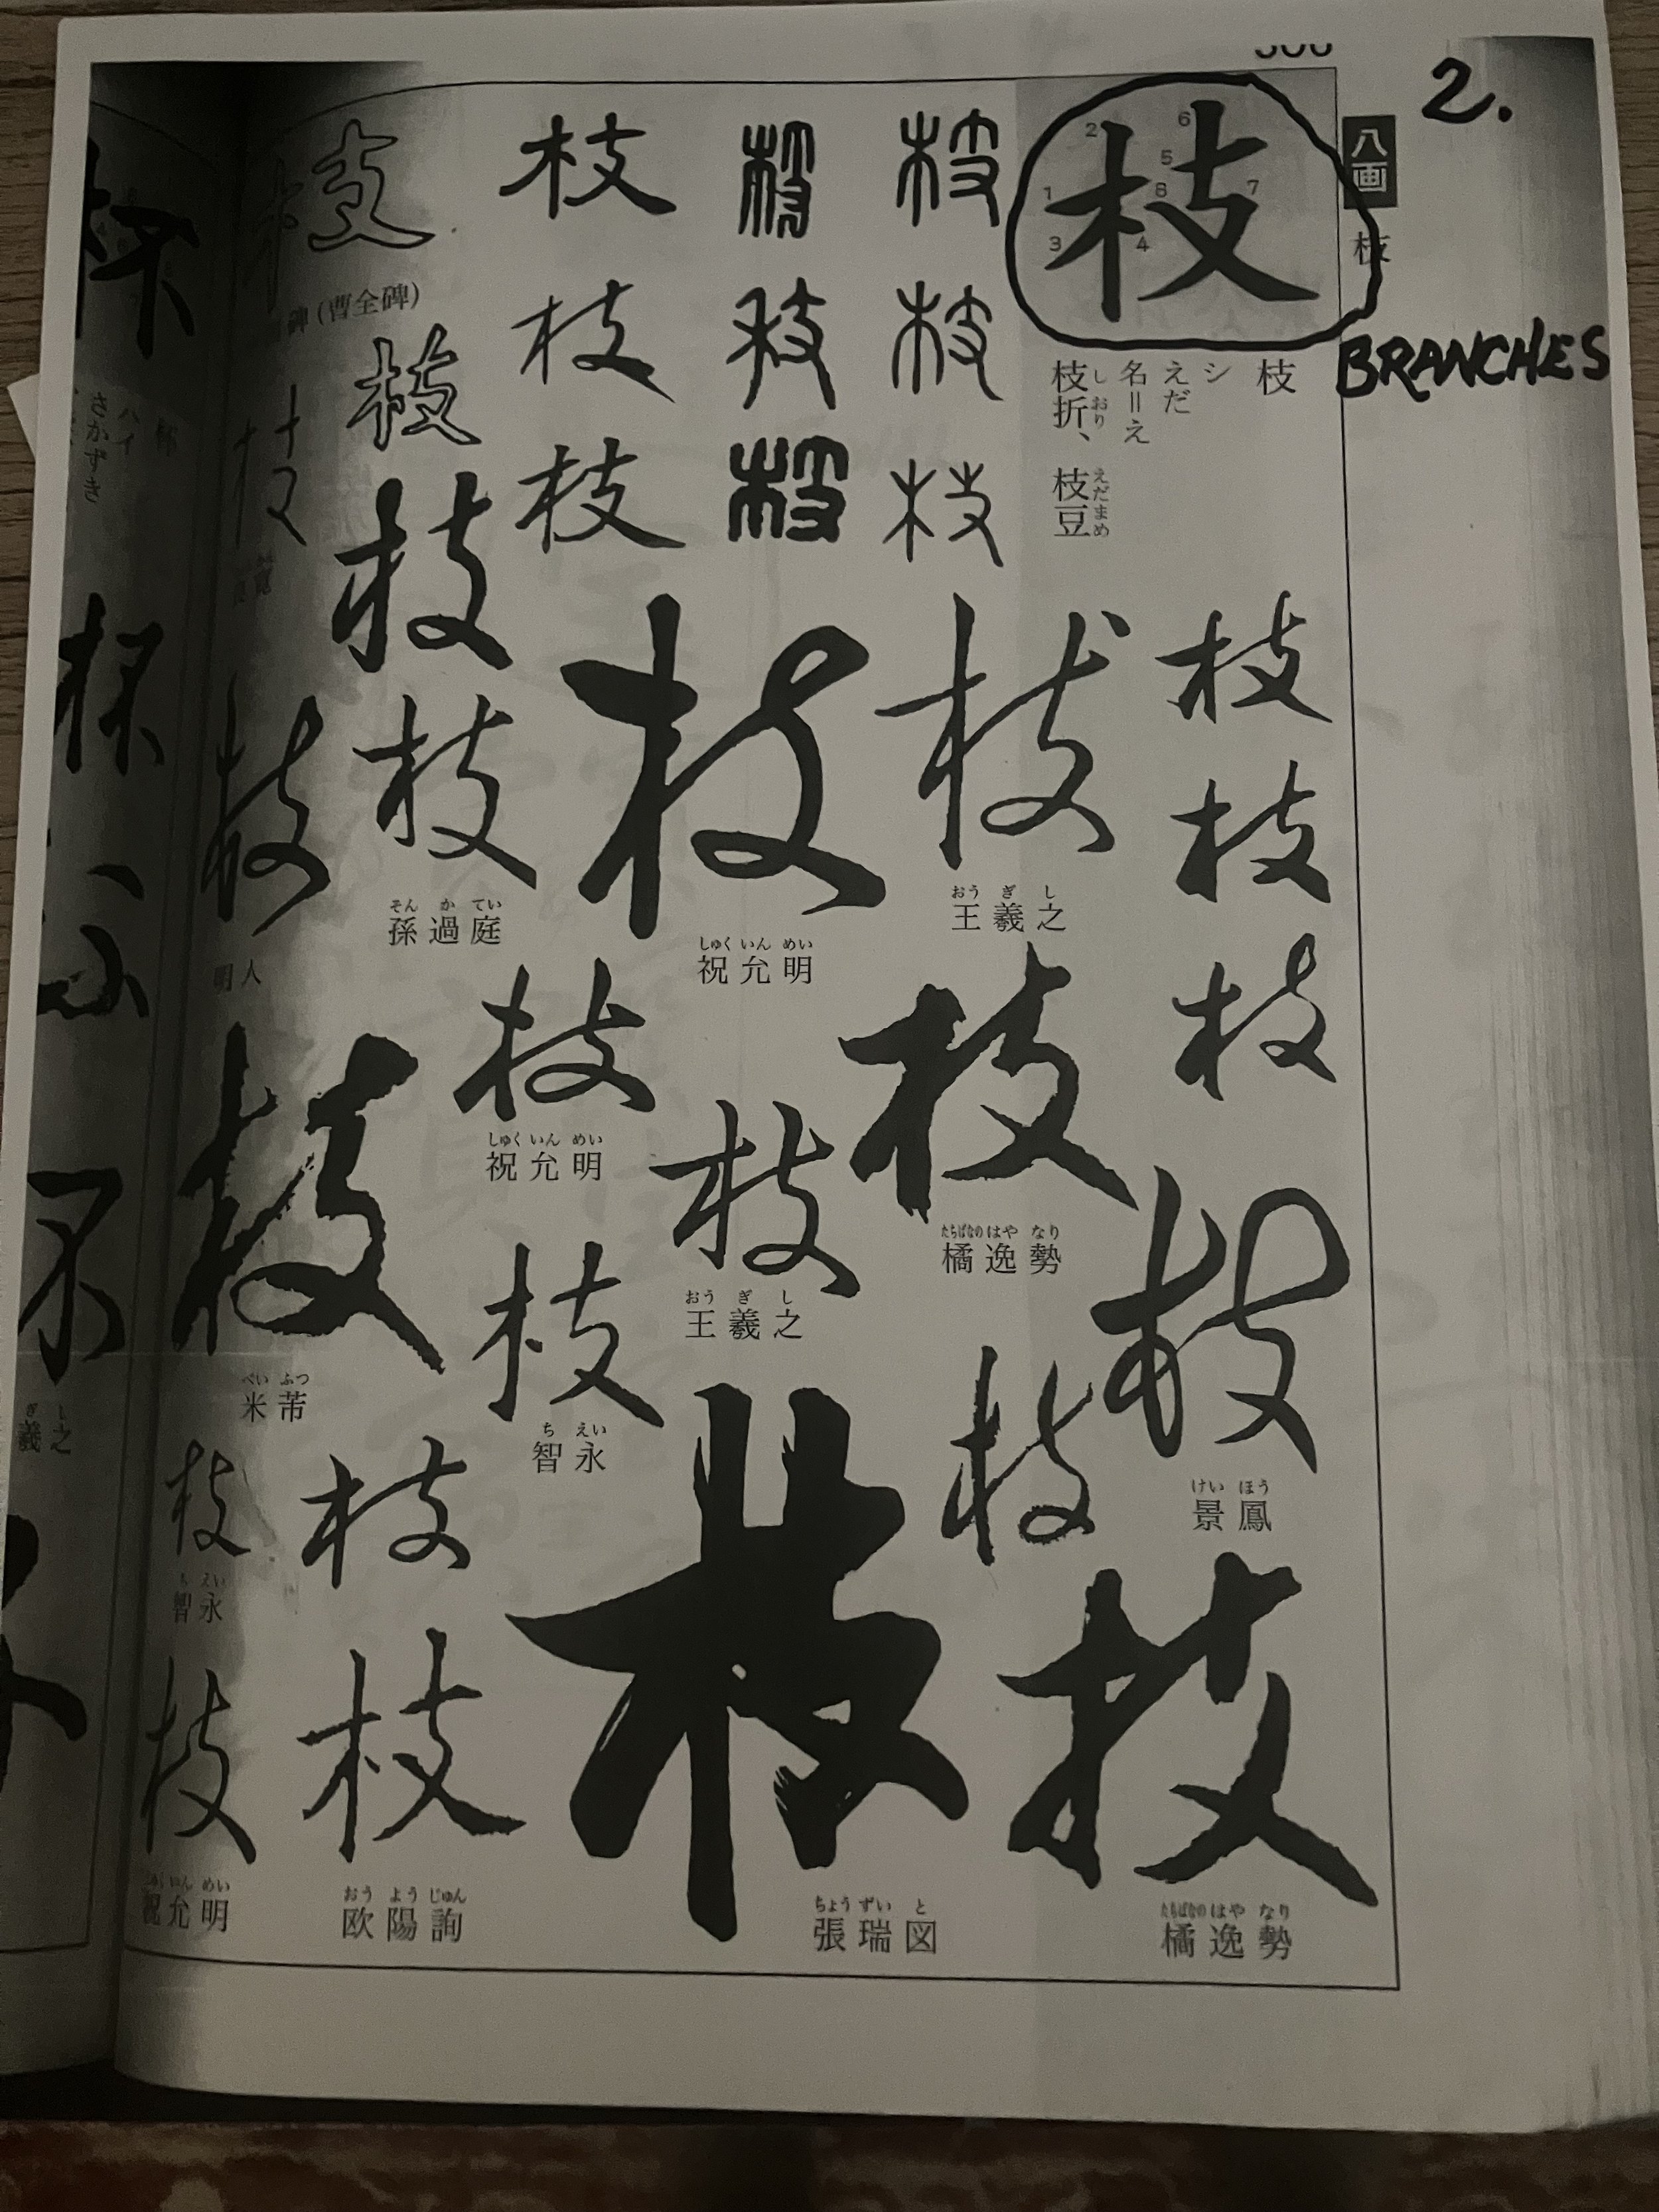 2.
八画
枝
BRANCHES
枝
1 2 3 4 5 6 7 8
枝
シ
えだ
名=え
枝折、枝豆
しおり えだまめ
枝
枝
枝
枝
枝
枝
枝
枝
枝
枝
枝
枝
おうぎし
王羲之
枝
たちばなのはやなり
橘逸勢
枝
けいほう
景鳳
枝
枝
たちばなのはやなり
橘逸勢
枝
しゅくいんめい
祝允明
枝
おうぎし
王羲之
枝
ちょうずいと
張瑞図
枝
碑(曹全碑)
枝
枝
枝
枝
そんかてい
孫過庭
枝
しゅくいんめい
祝允明
枝
ちえい
智永
枝
枝
おうようじゅん
欧陽詢
枝
枝
明人
枝
べいふつ
米芾
枝
ちえい
智永
枝
しゅくいんめい
祝允明
杯
ハイ
さかずき
羲之